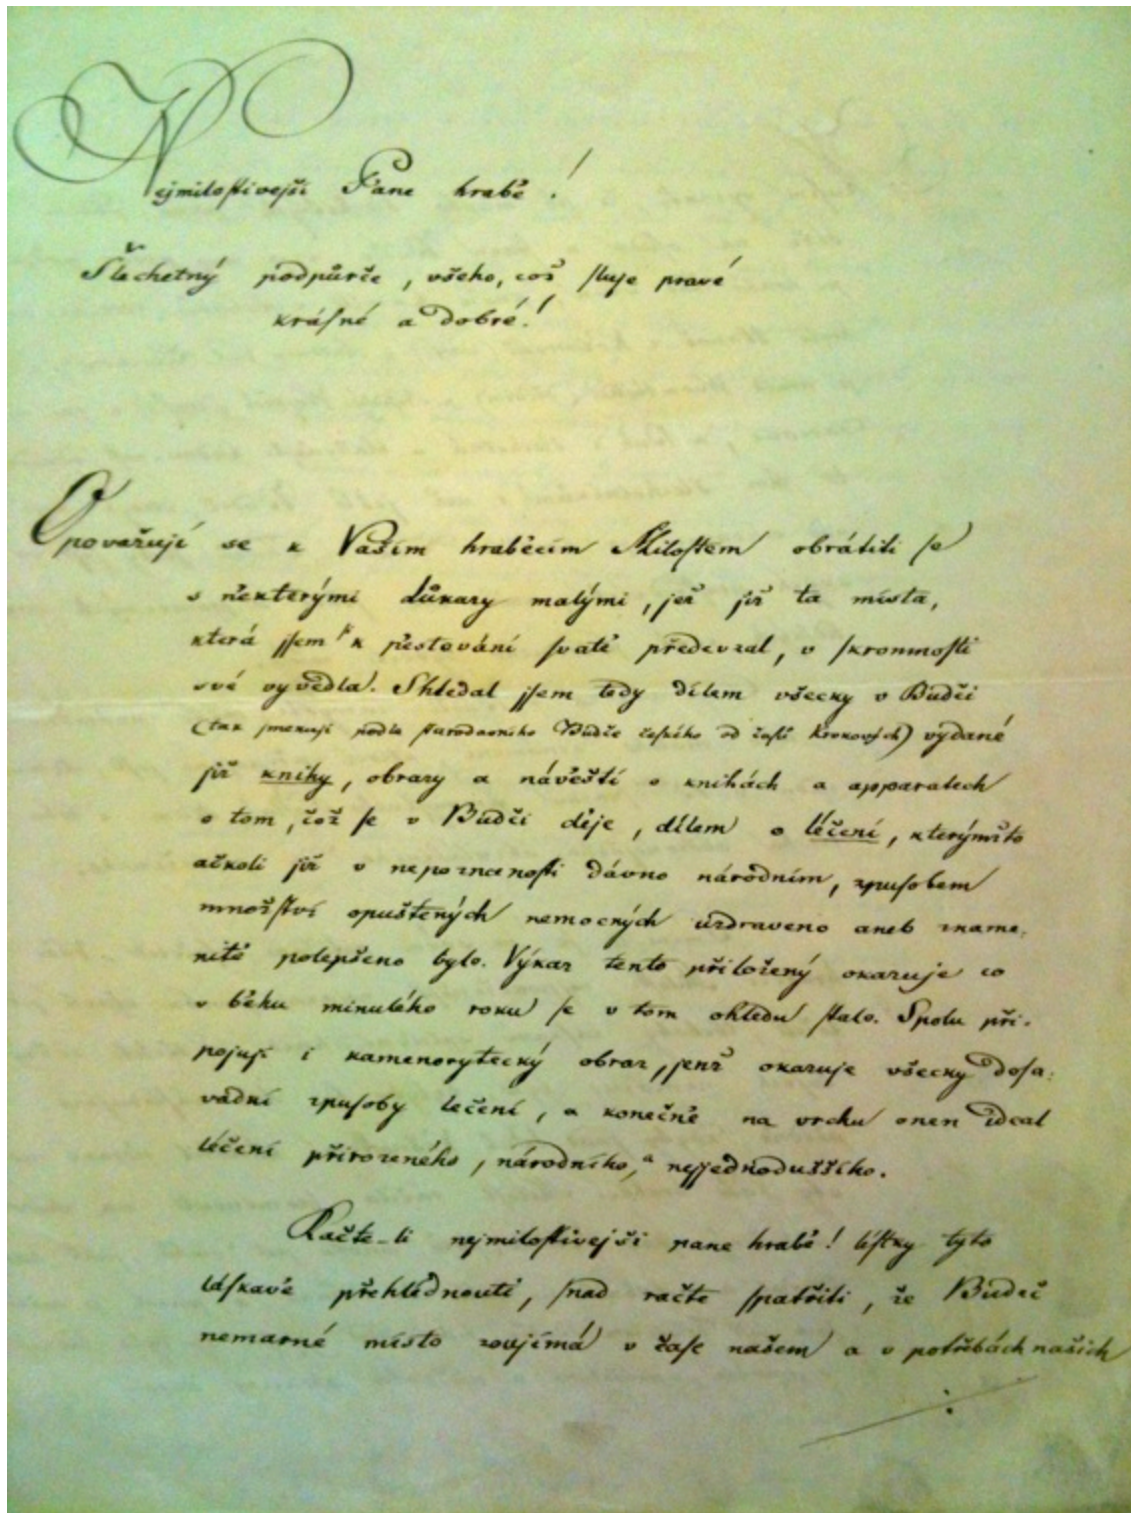 Nejmilostivejši Pane hrabě!
Šlechetný podpůrče, všeho, což sluje pravé
krásné a dobré!
Opovažuji se k Vašim hraběcím Milostem obrátiti se
s některými důkazy malými, jež již ta místa,
která jsem k pěstování svatě předevzal, v skromnosti
své vyvedla. Shledal jsem tedy dílem všecky v Budči
(tak jmenuji podle starodavního Budče českého od časů Krokových) vydané
již knihy, obrazy a návěští o knihách a apparatech
o tom, což se v Budči děje, dílem o léčení, kterýmžto
ačkoli již v nepoznanosti dávno národním, zpusobem
množství opuštěných nemocných uzdraveno aneb zname-
nitě polepšeno bylo. Výkaz tento přiložený okazuje co
v běhu minulého roku se v tom ohledu stalo. Spolu při-
pojuji i kamenorytecký obraz, jenž okazuje všecky dosa-
vádní zpusoby lečení, a konečně na vrchu onen ideal
léčení přirozeného, národního, a nejjednoduššího.
Račte-li nejmilostivejši pane hrabě! lístky tyto
láskavě přehlédnouti, snad račte spatřiti, že Budeč
nemarné místo zaujímá v čase našem a v potřebách našich